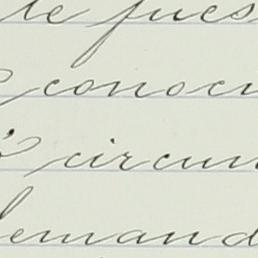 te fues
conoci
circun
demand